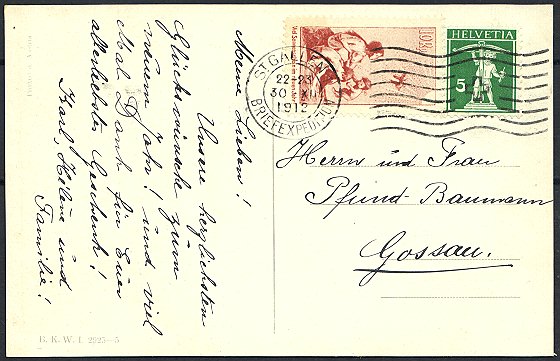 Meine Lieben!
Unsere herzlichsten
Glückwünsche zum
neuem Jahr! und viel
Mal Dank für Euer
allerliebstes Geschenk!
Karl, Hélène und
Familie!
10
HELVETIA
5
ST. GALLEN
22-23
30 XII
1912
BRIEFEXPEDITION
Herrn und Frau
Pfund-Baumann
Gossau.
B. K. W. I 2925-5